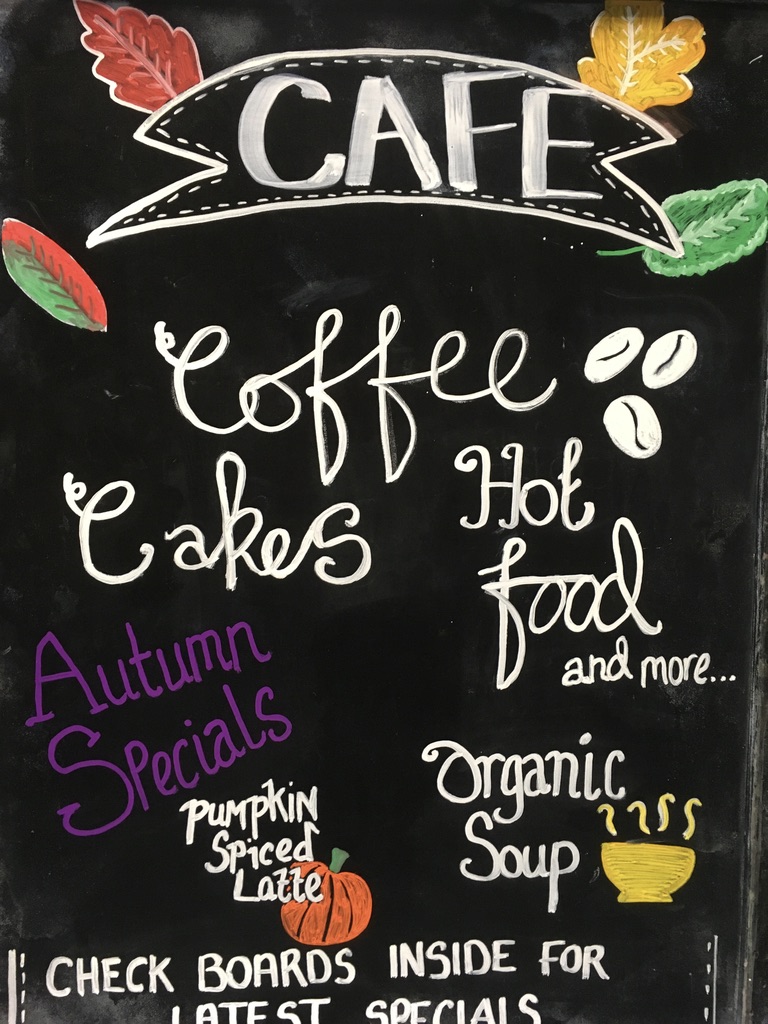 CAFE
Coffee
Cakes
Hot
food
and more...
Autumn
Specials
Pumpkin
Spiced
Latte
Organic
Soup
CHECK BOARDS INSIDE FOR
LATEST SPECIALS